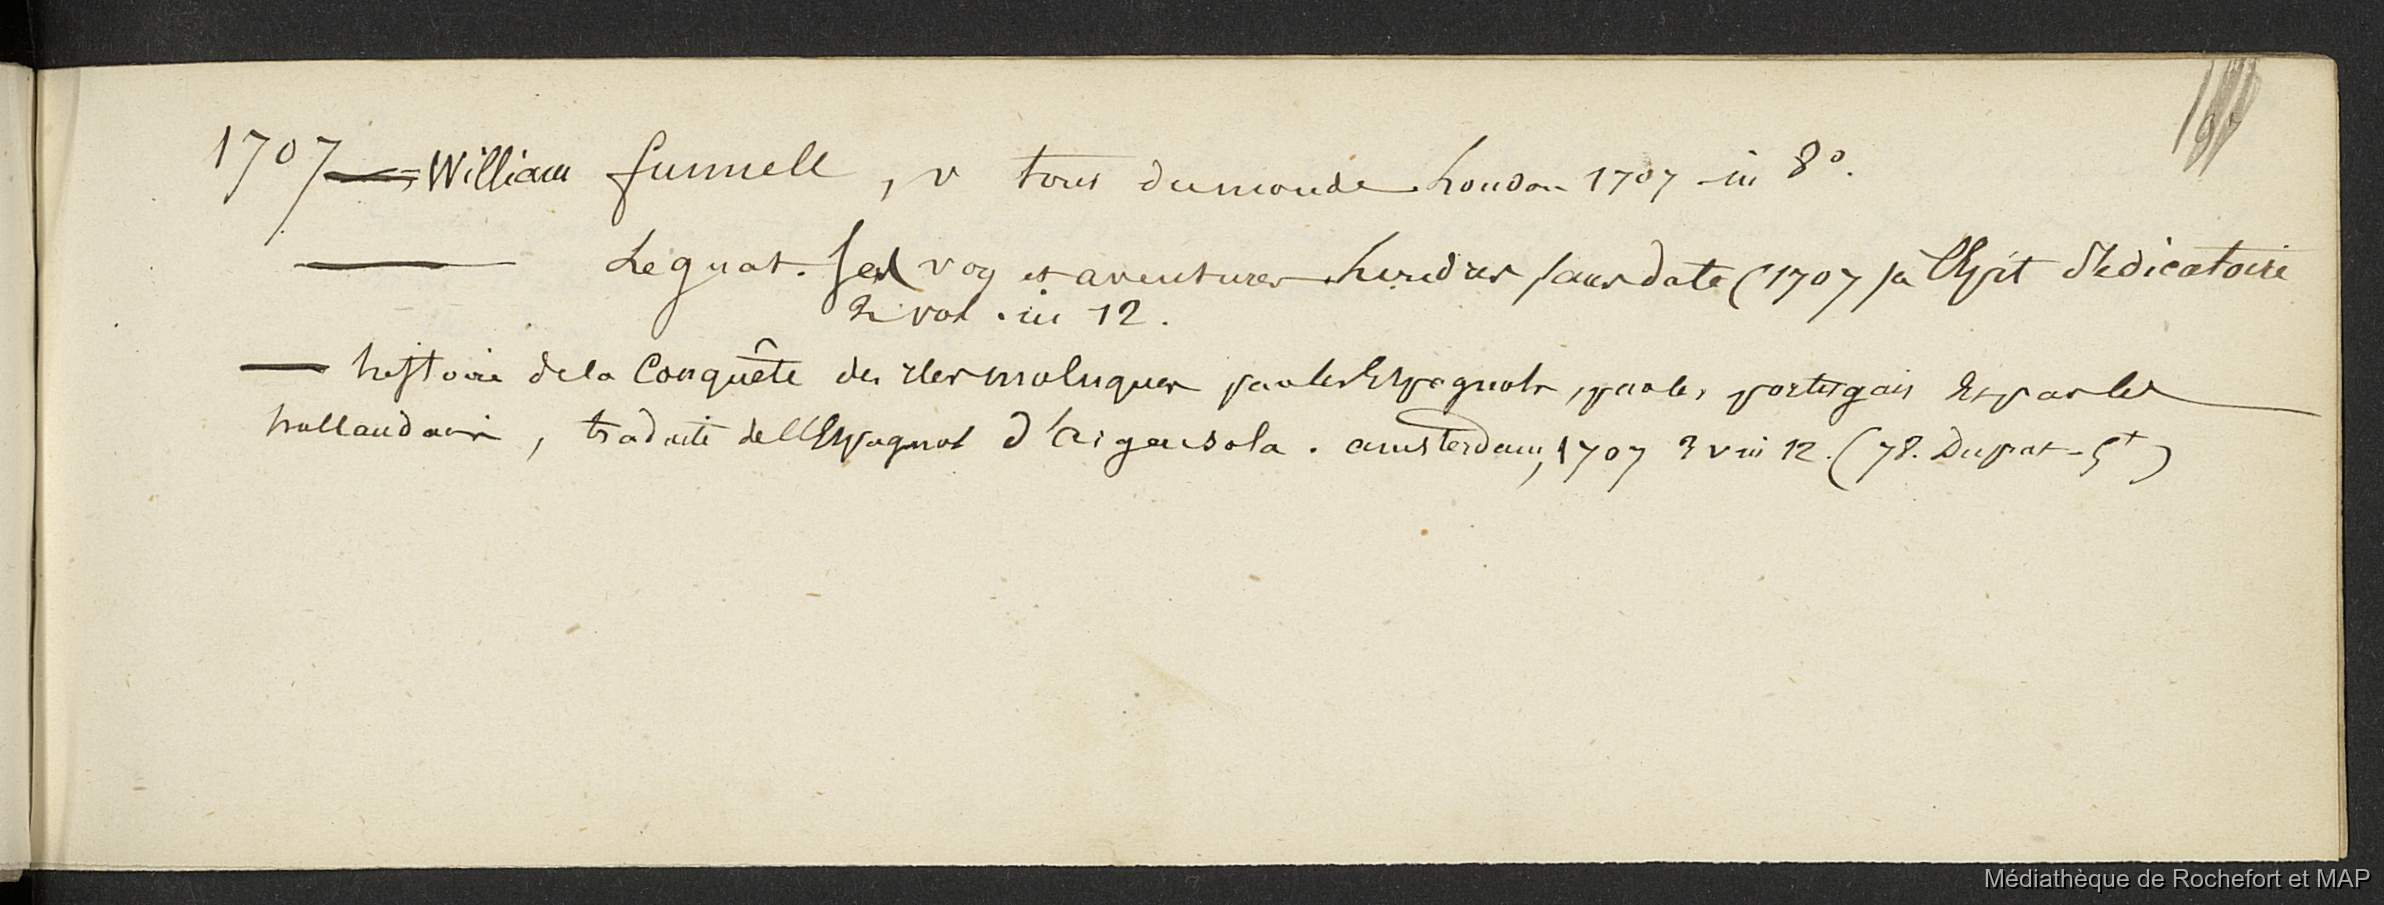 1707 — William funnell, v tour du monde London 1707 in 8°.
— Leguat. Ses voy et aventures Londres sans date (1707 à l'Epit dédicatoire
2 vol. in 12.
— histoire de la Conquête des isles moluques par les Espagnols, par les portugais et par les
hollandais, traduite de l'Espagnol d'argensola. amsterdam, 1707 3 v in 12. (78. Duprat-5+)
Médiathèque de Rochefort et MAP